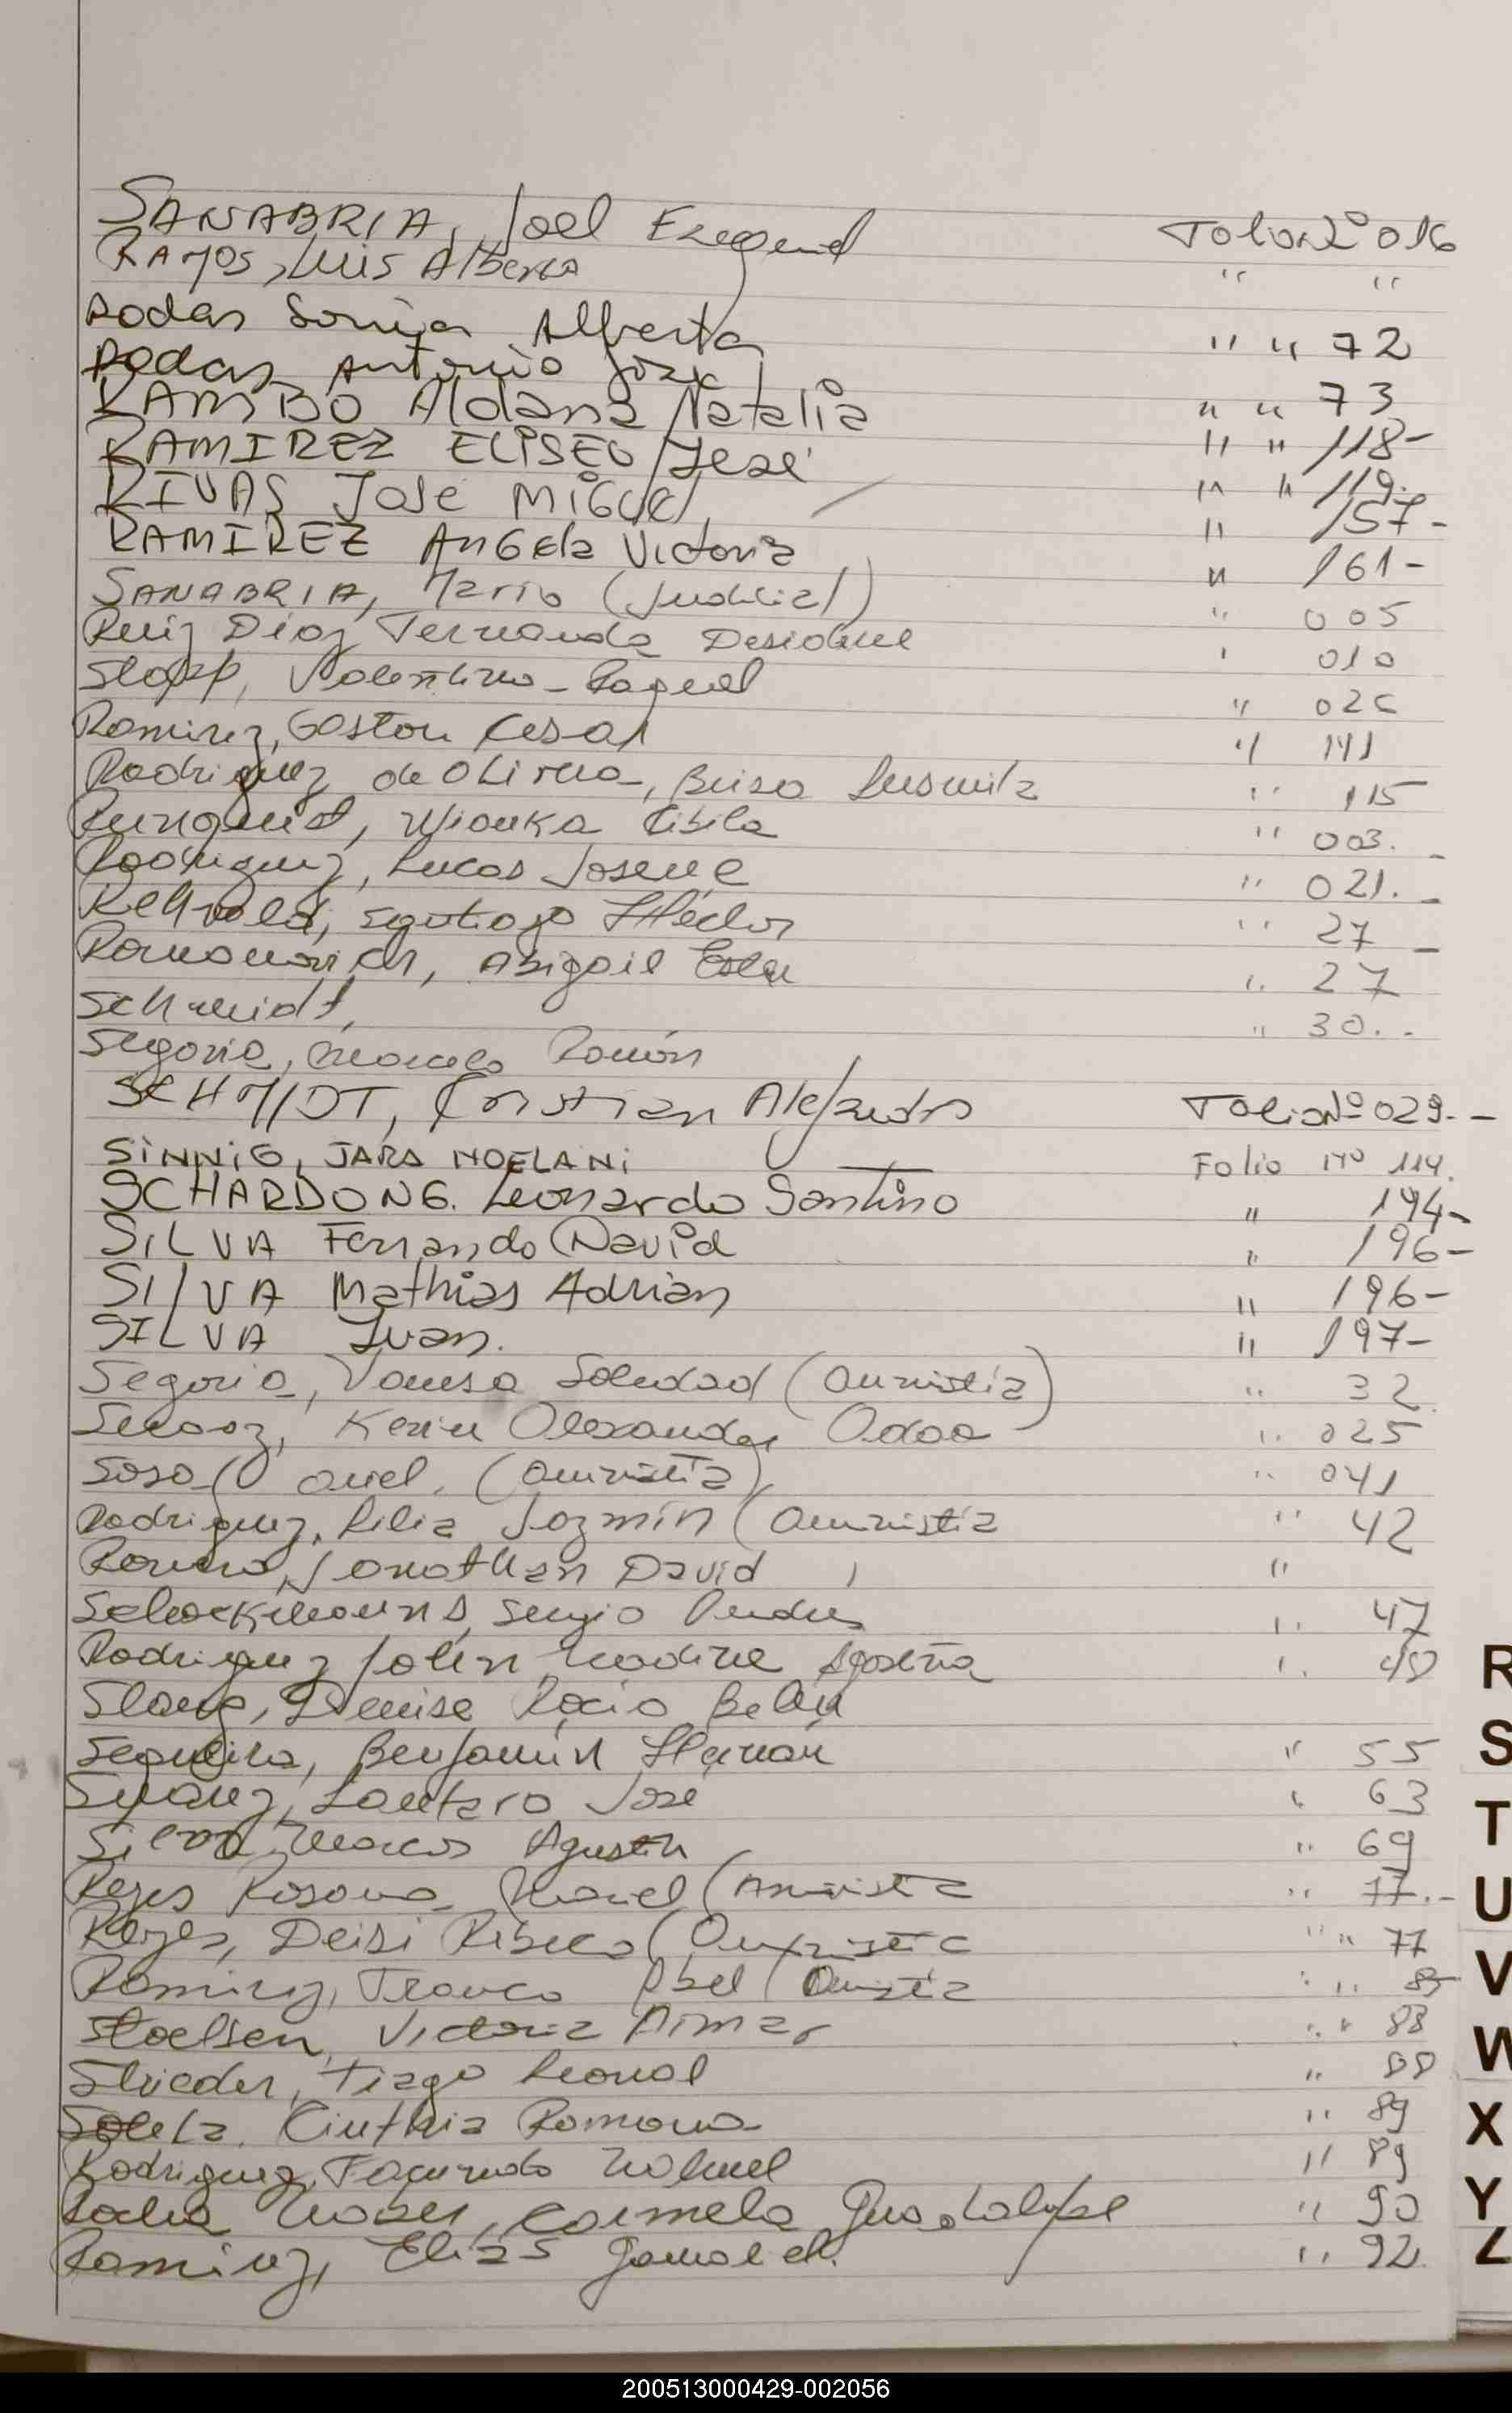 SANABRIA, Joel Folio Nº 016
RAMOS, Luis Alberto " "
Rodas Sonia Alberta " " 72
Rodas Antonio José " " 73
RAMBO Aldana Natalia " " 118-
RAMIREZ ELISEO José " " 119-
RIVAS José Miguel " 157-
RAMIREZ Angela Victoria " 161-
SANABRIA, Mario (Judicial) " 005
Ruiz Diaz Fernanda " 010
Valentino Raquel "
Ramirez, Gaston Cesar " 141
Rodriguez de Olivera, Brisa Lusmila " 115
" 003.
Rodriguez, Lucas " 021.
Santiago Héctor " 27
Romanovich, Abigail " 27
Schmidt, " 30.
Segovia, Marcelo Ramón
SCHMIDT, Cristian Alejandro Folio Nº 029.-
SiNNiG, JARA NOELANi Folio Nº 114.
SCHARDONG. Leonardo Santino " 194-
SILVA Fernando David " 196-
SILVA Mathias Adrian " 196-
SILVA Juan. " 197-
Segovia, Vanesa Soledad (Amnistia) " 32
Kevin Alexander " 025
Sosa Ariel. (Amnistia) " 041
Rodriguez, Lilia Jazmín (Amnistia " 42
Romero, Jonathan David "
Sergio Andres " 47
Rodriguez Nadine Agostina "
Denise Rocio Belén
Sequeira, Benjamín Hernan " 55
Suarez, Lautaro José " 63
Silva, Marcos Agustin " 69
Reyes Rosana (Amnistia " 77.-
Reyes, Deisi Rebeca (Amnistia " " 77
Ramirez, Franco Abel (Amnistia " " 85
Victoria Aimar " " 88
Strieder, Tiago Leonel " 88
Cinthia Romona " 89
Rodriguez, Facundo Nahuel " 89
Rocha Carmela Guadalupe " 90
Ramirez, Elias " 92
R
S
T
U
V
W
X
Y
Z
200513000429-002056